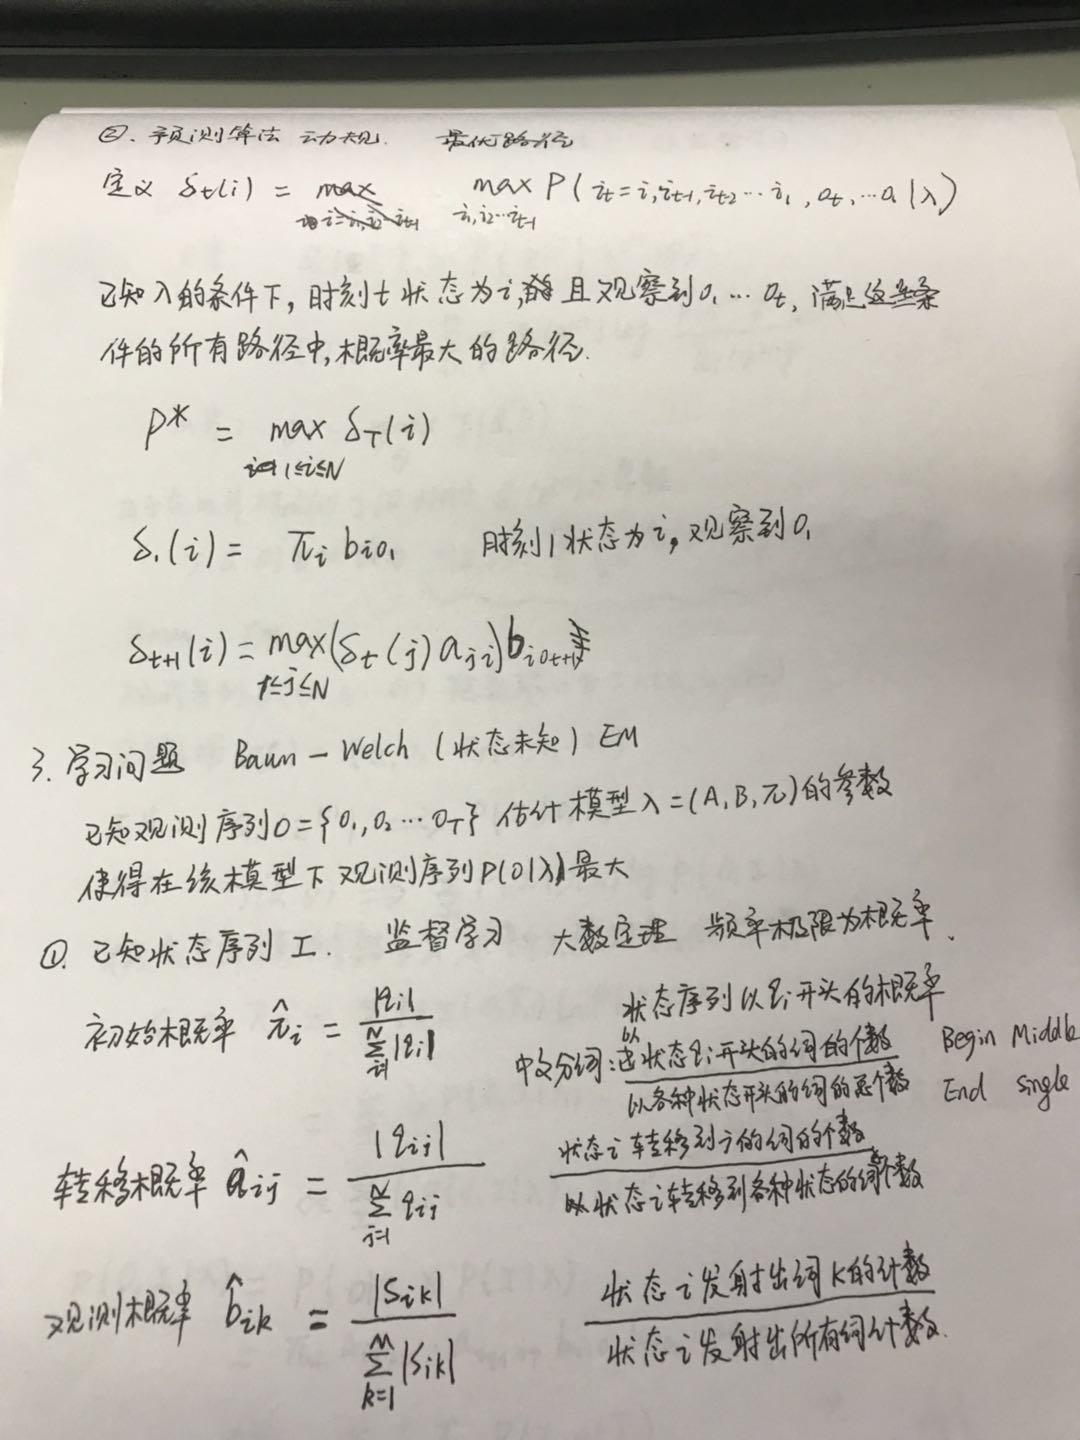 ②. 预测算法 动规. 最优路径
定义 δt(i) = max max P( it=i, it-1, it-2 … i1 , ot, … o1 |λ)
i1, i2 … it-1
已知λ的条件下, 时刻t状态为i, 且观察到o1 … ot, 满足这些条
件的所有路径中, 概率最大的路径.
P* = max δT(i)
1≤i≤N
δ1(i) = πi bio1 时刻1状态为i, 观察到o1
δt+1(i) = max(δt(j) aji) biot+1
1≤j≤N
3. 学习问题 Baum - Welch (状态未知) EM
已知观测序列O={o1, o2 … oT} 估计模型λ=(A, B, π)的参数
使得在该模型下观测序列P(O|λ)最大
①. 已知状态序列 I. 监督学习 大数定理 频率极限为概率.
初始概率 π̂i = |qi| / Σ(i=1→N) |qi| 状态序列以qi开头的概率
中文分词: 以状态qi开头的词的个数 / 以各种状态开头的词的总个数 Begin Middle
End single
转移概率 âij = |qij| / Σ(j=1→N) qij 状态i转移到j的词的个数 / 以状态i转移到各种状态的词个数
观测概率 b̂ik = |Sik| / Σ(k=1→M) |Sik| 状态i发射出词k的计数 / 状态i发射出所有词计数.